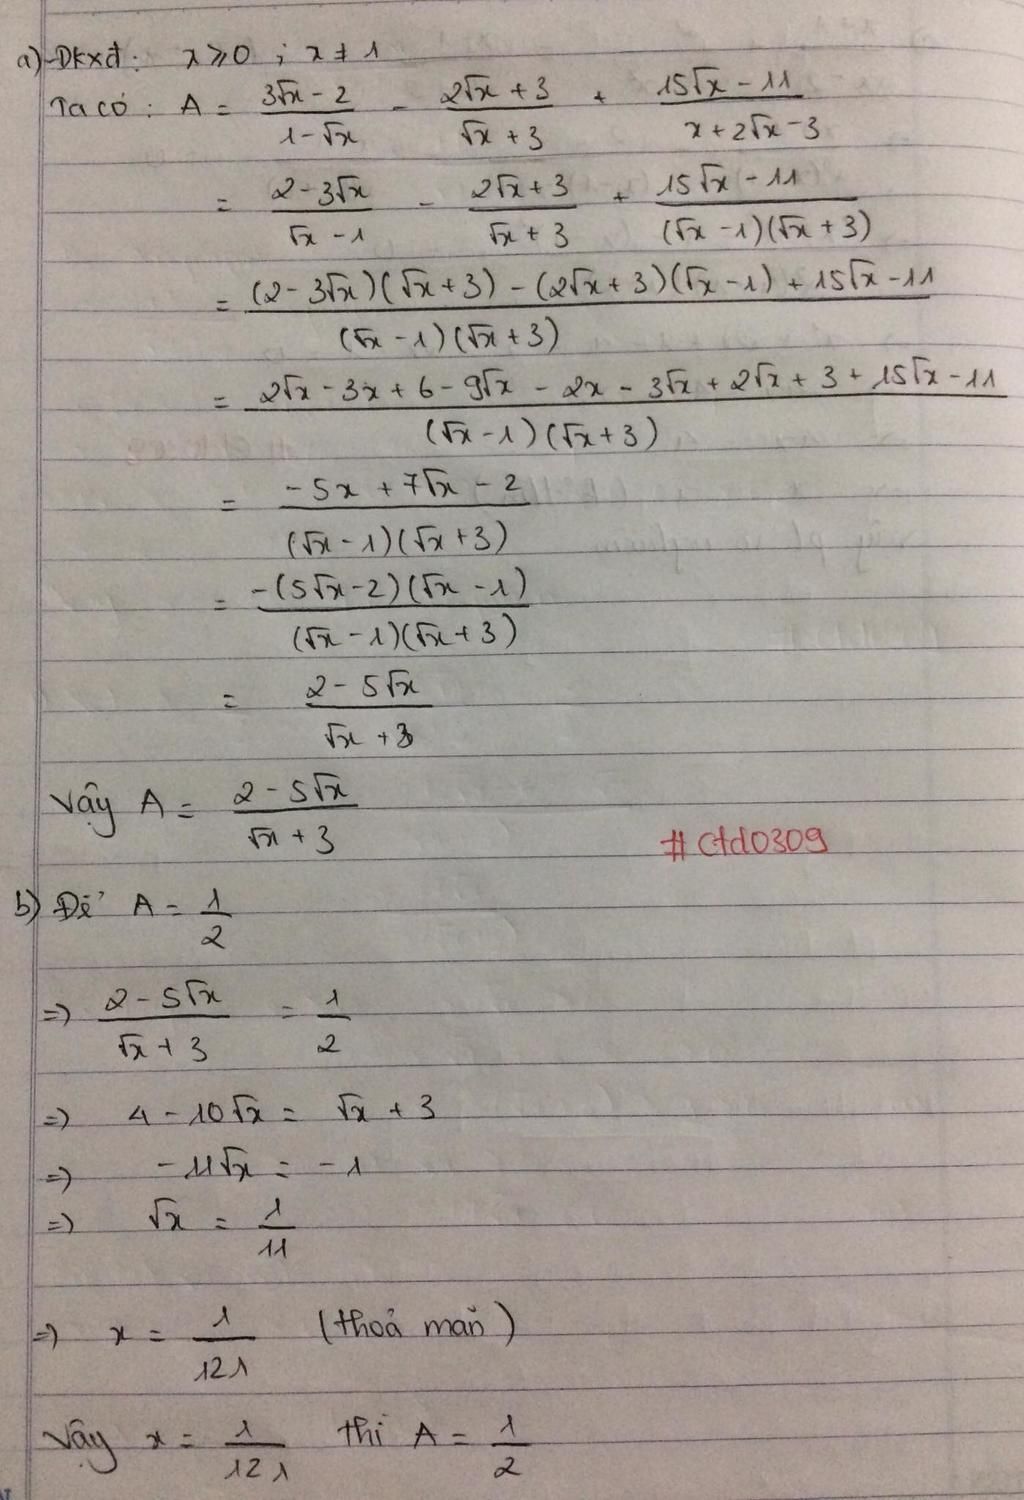 a) Đkxđ: x ⩾ 0 ; x ≠ 1
Ta có : A = (3√x - 2)/(1 - √x) - (2√x + 3)/(√x + 3) + (15√x - 11)/(x + 2√x - 3)
= (2 - 3√x)/(√x - 1) - (2√x + 3)/(√x + 3) + (15√x - 11)/((√x - 1)(√x + 3))
= ((2 - 3√x)(√x + 3) - (2√x + 3)(√x - 1) + 15√x - 11)/((√x - 1)(√x + 3))
= (2√x - 3x + 6 - 9√x - 2x - 3√x + 2√x + 3 + 15√x - 11)/((√x - 1)(√x + 3))
= (-5x + 7√x - 2)/((√x - 1)(√x + 3))
= (-(5√x - 2)(√x - 1))/((√x - 1)(√x + 3))
= (2 - 5√x)/(√x + 3)
Vậy A = (2 - 5√x)/(√x + 3)
#ctd0309
b) Để A = 1/2
=> (2 - 5√x)/(√x + 3) = 1/2
=> 4 - 10√x = √x + 3
=> -11√x = -1
=> √x = 1/11
=> x = 1/121 (thoả mãn)
Vậy x = 1/121 thì A = 1/2